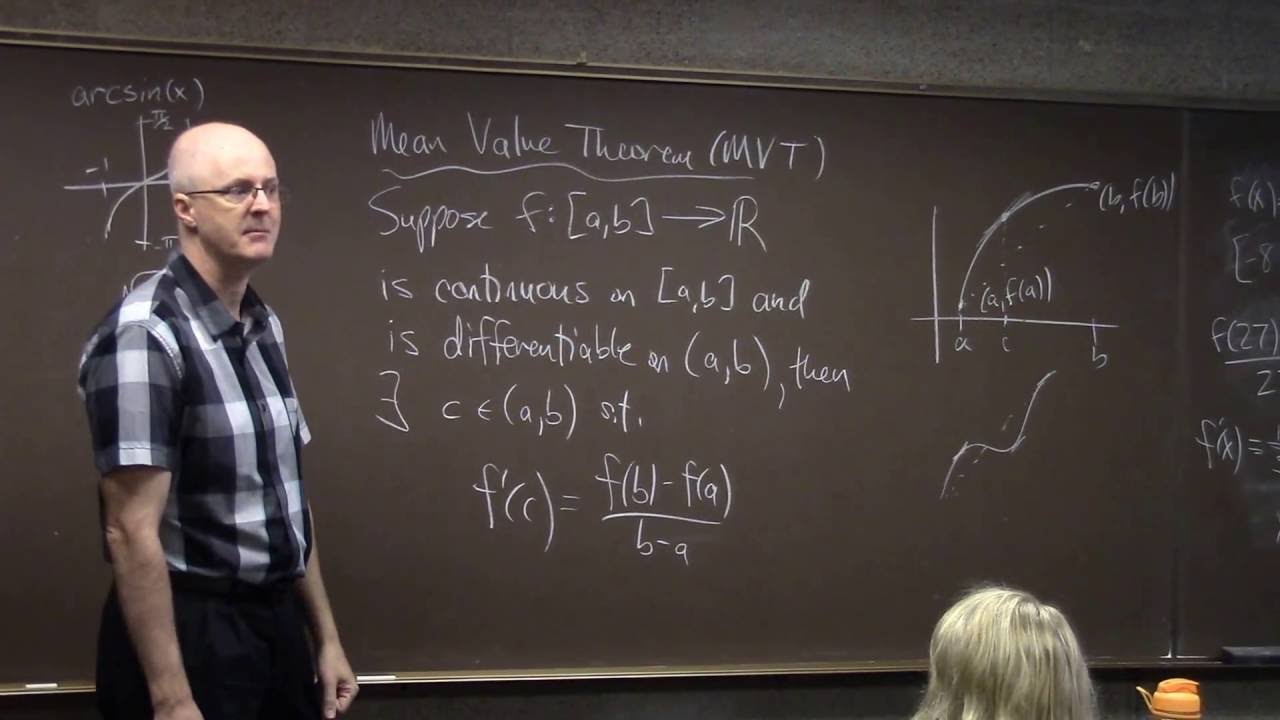 arcsin(x)
π/2
-1
Mean Value Theorem (MVT)
Suppose f: [a,b] → ℝ
is continuous on [a,b] and
is differentiable on (a,b), then
∃ c ∈ (a,b) s.t.
f'(c) = f(b) - f(a)
b - a
(b, f(b))
(a, f(a))
a c b
f(x)
[-8
f(27)
2
f'(x) =